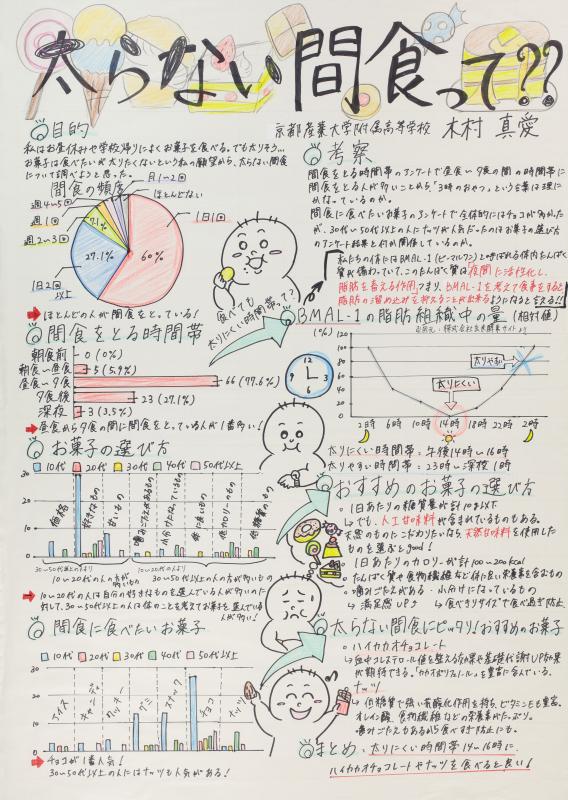 太らない間食って??
京都産業大学附属高等学校 木村 真愛
目的
私はお昼休みや学校帰りによくお菓子を食べる。でも太りそう…
お菓子は食べたいが太りたくないという私の願望から、太らない間食
について調べようと思った。
間食の頻度
月1〜2回
ほとんどない
週4〜5回
週1回
週2〜3回
1日2回
以上
1日1回
60%
27.1%
7.1%
➡ほとんどの人が間食をとっている!
食べても
太りにくい時間帯って?
間食をとる時間帯
朝食前 0 (0%)
朝食〜昼食 5 (5.9%)
昼食〜夕食 66 (77.6%)
夕食後 23 (27.1%)
深夜 3 (3.5%)
➡昼食から夕食の間に間食をとっている人が1番多い!
お菓子の選び方
10代 20代 30代 40代 50代以上
30
20
10
0
価格
好きなもの
甘いもの
噛みごたえがあるもの
小分けになっているもの
体に良いもの
低カロリーのもの
低糖質のもの
30〜50代以上のもの
10〜20代の人より
10〜20代の人の方が多いもの
30〜50代以上の人の方が多いもの
➡10〜20代の人は自分の好きなものを選んでいる人が多いのに
対して、30〜50代以上の人は体のことを考えてお菓子を選んでいる
人が多い!
間食に食べたいお菓子
10代 20代 30代 40代 50代以上
30
20
10
0
アイス
クッキー
グミ
スナック
チョコ
ナッツ
➡チョコが1番人気!
30〜50代以上の人にはナッツも人気がある!
考察
間食をとる時間帯のアンケートで昼食〜夕食の間の時間帯に
間食をとる人が多いことから、「3時のおやつ」という言葉は理に
かなっているのか。
間食に食べたいお菓子のアンケートで全体的にはチョコが多かった
が、30代〜50代以上の人にナッツが人気だったのはお菓子の選び方
のアンケート結果と何か関係しているのか。
私たちの体にはBMAL-1(ビーマルワン)と呼ばれる体内たんぱく
質が備わっていて、このたんぱく質は「夜間に活性化し、
脂肪を蓄える作用」つまり、BMAL-1を考えて食事をすると
脂肪の溜め込みを抑えることが出来るようになると言える!!
BMAL-1の脂肪組織中の量(相対値)
(%)
120
100
80
60
40
20
0
太りやすい
太りにくい
2時 6時 10時 14時 18時 22時 2時
太りにくい時間帯:午後14時〜16時
太りやすい時間帯:23時〜深夜1時
おすすめのお菓子の選び方
○1日あたりの糖質量が計10g以下
↳でも、人工甘味料が含まれているものもある。
天然のものにこだわりたいなら天然甘味料を使用した
ものを選ぶとgood!
○1日あたりのカロリーが計100〜200kcal
○たんぱく質や食物繊維など体に良い栄養素を含むもの
○噛みごたえがある ○小分けになっているもの
↳満足感UP↑ ↳食べきりサイズで食べ過ぎ防止
太らない間食にピッタリ!おすすめのお菓子
○ハイカカオチョコレート
↳血中コレステロール値を整える効果や基礎代謝UP効果
が期待できる。「カカオポリフェノール」を豊富に含んでいる。
○ナッツ
↳低糖質で強い抗酸化作用を持ち、ビタミンEも豊富。
オレイン酸、食物繊維などの栄養素がたっぷり。
噛みごたえもあるから食べすぎ防止にも。
まとめ:太りにくい時間帯14〜16時に、
ハイカカオチョコレートやナッツを食べると良い!